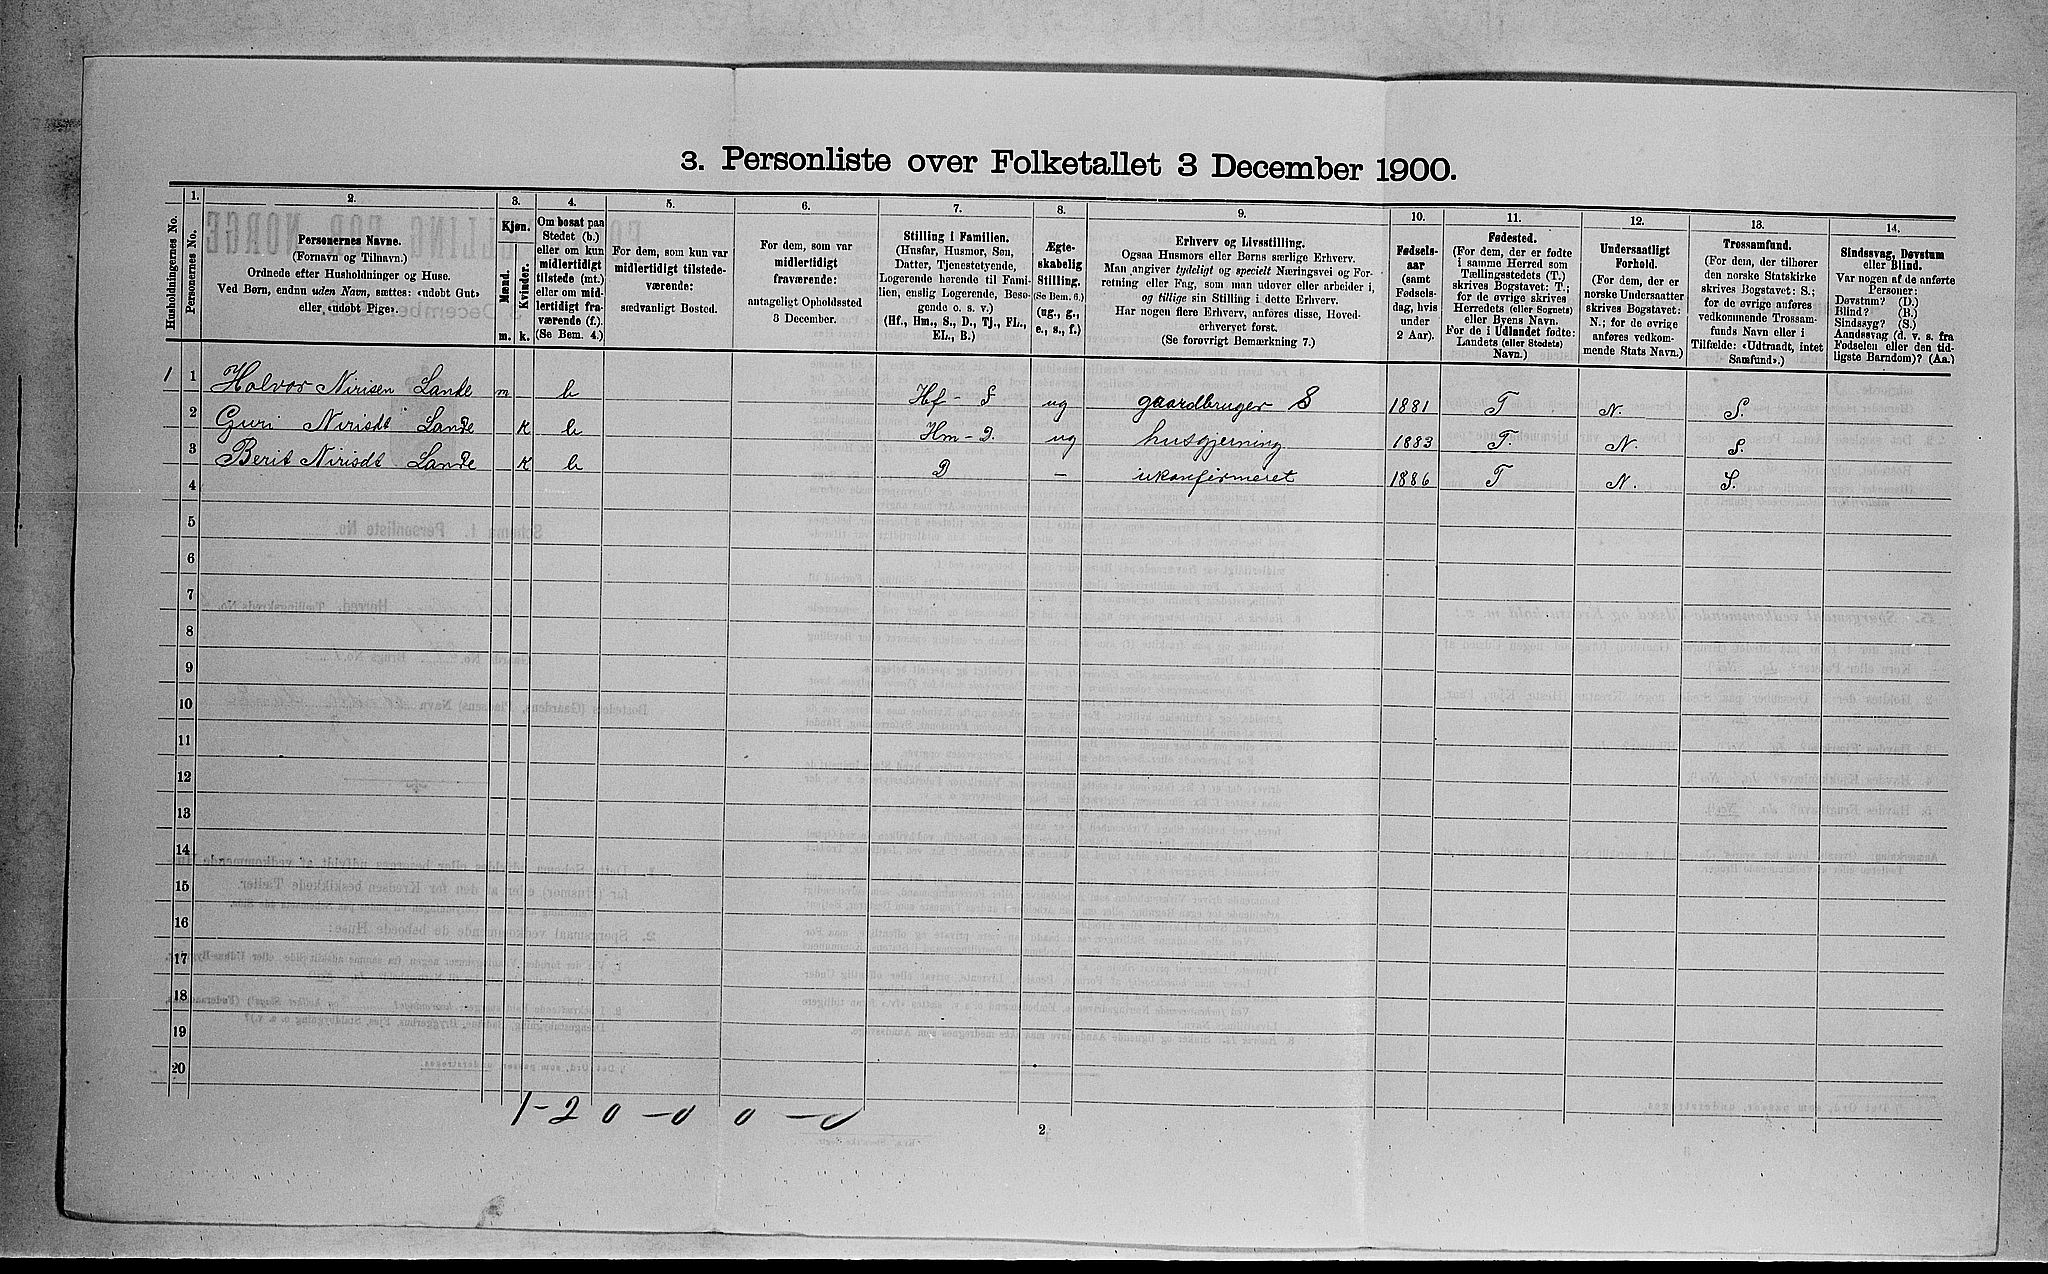 3. Personliste over Folketallet 3 December 1900.
Husholdningernes No.
1.
Personernes No.
2.
Personernes Navne.
(Fornavn og Tilnavn.)
Ordnede efter Husholdninger og Huse.
Ved Børn, endnu uden Navn, sættes: «udøbt Gut»
eller «udøbt Pige».
3.
Kjøn.
Mænd.
Kvinder.
m. k.
4.
Om bosat paa
Stedet (b.)
eller om kun
midlertidigt
tilstede (mt.)
eller om mid-
lertidigt fra-
værende (f.).
(Se Bem. 4.)
5.
For dem, som kun var
midlertidigt tilstede-
værende:
sædvanligt Bosted.
6.
For dem, som var
midlertidigt
fraværende:
antageligt Opholdssted
3 December.
7.
Stilling i Familien.
(Husfar, Husmor, Søn,
Datter, Tjenestetyende,
Logerende hørende til Fami-
lien, enslig Logerende, Besø-
gende o. s. v.)
(Hf., Hm., S., D., Tj., FL.,
EL., B.)
8.
Ægte-
skabelig
Stilling.
(Se Bem. 6.)
(ug., g.,
e., s., f.)
9.
Erhverv og Livsstilling.
Ogsaa Husmors eller Børns særlige Erhverv.
Man angiver tydeligt og specielt Næringsvei og For-
retning eller Fag, som man udøver eller arbeider i,
og tillige sin Stilling i dette Erhverv.
Har nogen flere Erhverv, anføres disse, Hoved-
erhvervet først.
(Se forøvrigt Bemærkning 7.)
10.
Fødsels-
aar
(samt
Fødsels-
dag, hvis
under
2 Aar).
11.
Fødested.
(For dem, der er fødte
i samme Herred som
Tællingsstedets (T.)
skrives Bogstavet: T.;
for de øvrige skrives
Herredets (eller Sognets)
eller Byens Navn.
For de i Udlandet fødte:
Landets (eller Stedets)
Navn.)
12.
Undersaatligt
Forhold.
(For dem, der er
norske Undersaatter
skrives Bogstavet:
N.; for de øvrige
anføres vedkom-
mende Stats Navn.)
13.
Trossamfund.
(For dem, der tilhører
den norske Statskirke
skrives Bogstavet: S.;
for de øvrige anføres
vedkommende Trossam-
funds Navn eller i
Tilfælde: «Udtraadt, intet
Samfund».)
14.
Sindssvag, Døvstum
eller Blind.
Var nogen af de anførte
Personer:
Døvstum? (D.)
Blind? (B.)
Sindssyg? (S.)
Aandssvag (d. v. s. fra
Fødselen eller den tid-
ligste Barndom)? (Aa.)
1 1 Halvor Nirisen Lande m b Hf - S ug gaardbruger S 1881 T N. S.
2 Guri Nirisdt Lande K b Hm - D. ug husgjerning 1883 T. N. S.
3 Berit Nirisdt Lande K b D — ukonfirmeret 1886 T N. S.
4
5
6
7
8
9
10
11
12
13
14
15
16
17
18
19
20
1 - 2 0 - 0 0 - 0
2